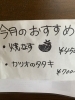 今月のおすすめ
・焼なす
¥450
・カツオのタタキ
¥700